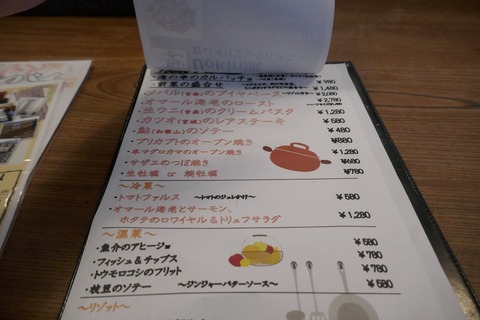 ・海の幸のカルパッチョ ¥980
・前菜の盛合せ ¥1,480
・メバル(宮城)のブイヤベース ¥2,080
・オマール海老のロースト ¥2,780
・生ウニ(宮城)のクリームパスタ ¥1,280
・カツオ(宮城)のレアステーキ ¥580
・鮎(和歌山)のソテー ¥480
・ブリカブトのオーブン焼き ¥880
・本マグロカマのオーブン焼き ¥1,280
・サザエのつぼ焼き ¥480
・生牡蠣 or 焼牡蠣 ¥780
～冷菜～
・トマトファルス ～トマトのジュレがけ～ ¥580
・オマール海老とサーモン、
ホタテのロワイヤル&トリュフサラダ ¥1,280
～温菜～
・魚介のアヒージョ ¥580
・フィッシュ&チップス ¥780
・トウモロコシのフリット ¥780
・枝豆のソテー ～ジンジャーバターソース～ ¥580
～リゾット～